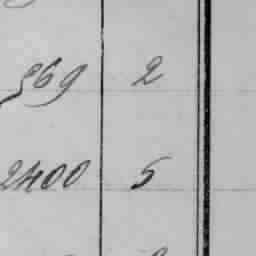 369 2
2400 5